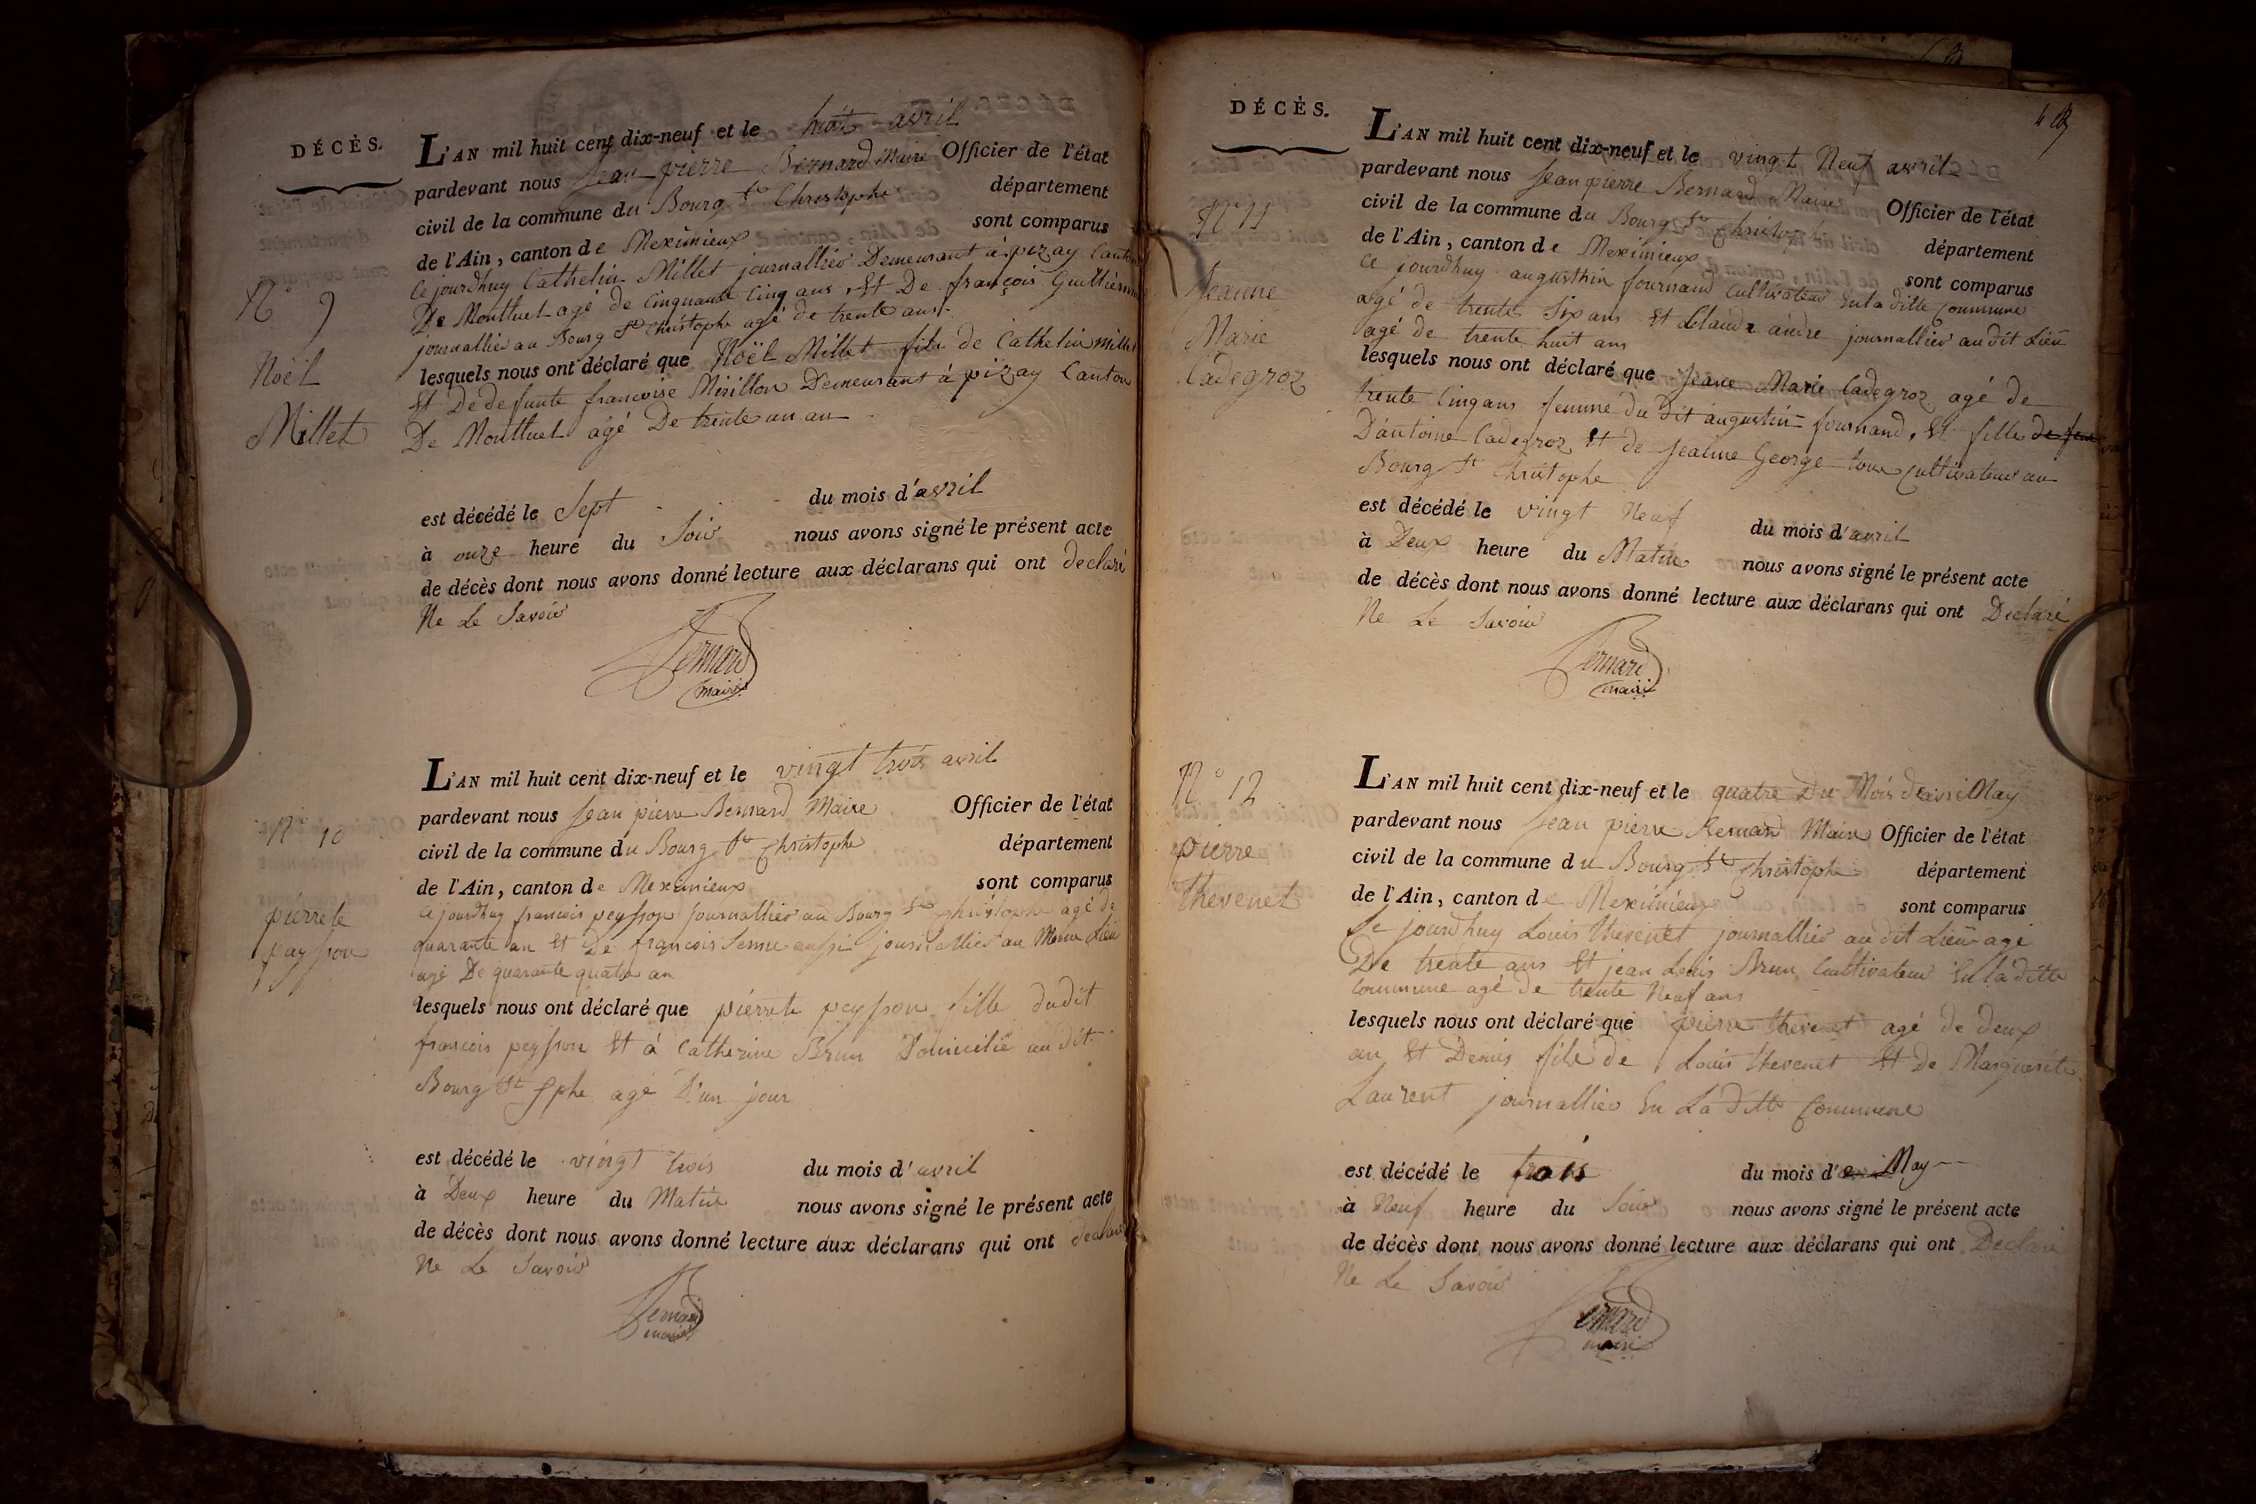 DÉCÈS.
L'AN mil huit cent dix-neuf et le huit avril
pardevant nous Jean pierre Bernard Maire Officier de l'état
civil de la commune du Bourg St Christophe département
de l'Ain, canton de Meximieux sont comparus
Ce jourdhuy Cathelin Millet journallier Demeurant à pizay Canton
De Montluel agé de Cinquante Cinq ans, Et De françois
journallier au Bourg St Christophe agé de trente ans
lesquels nous ont déclaré que Noël Millet fils de Cathelin Millet
Et De defunte francoise Demeurant à pizay Canton
De Montluel agé De trente un an
est décédé le Sept du mois d'avril
à onze heure du Soir nous avons signé le présent acte
de décès dont nous avons donné lecture aux déclarans qui ont declaré
Ne Le Savoir
Bernard
maire
N° 9
Noël
Millet
L'AN mil huit cent dix-neuf et le vingt trois avril
pardevant nous Jean pierre Bernard Maire Officier de l'état
civil de la commune du Bourg St Christophe département
de l'Ain, canton de Meximieux sont comparus
Ce jourdhuy francois peysson journallier au Bourg St Christophe agé de
quarante an Et De françois aussi journallier au Meme Lieu
agé De quarante quatre an
lesquels nous ont déclaré que pierrete peysson fille dudit
francois peysson Et à Catherine Brun Domicilié au dit
Bourg St Xphe agé D'un jour
est décédé le vingt trois du mois d'avril
à Deux heure du Matin nous avons signé le présent acte
de décès dont nous avons donné lecture aux déclarans qui ont declaré
Ne Le Savoir
Bernard
maire
N° 10
pierrete
paysson
DÉCÈS.
L'AN mil huit cent dix-neuf et le vingt Neuf avril
pardevant nous Jean pierre Bernard Maire Officier de l'état
civil de la commune du Bourg St Christophe département
de l'Ain, canton de Meximieux sont comparus
Ce jourdhuy augusthin fournand Cultivateur En la ditte Commune
agé de trente Six ans Et Claude andre journallier au dit Lieu
agé de trente huit ans
lesquels nous ont déclaré que Jeane Marie Cadegroz agé de
trente Cinq ans femme du Dit augustin fournand, Et fille de feu
D'antoine Cadegroz Et de Jeanne George tous Cultivateur au
Bourg St Christophe
est décédé le vingt Neuf du mois d'avril
à Deux heure du Matin nous avons signé le présent acte
de décès dont nous avons donné lecture aux déclarans qui ont Declaré
Ne Le Savoir
Bernard
maire
N° 11
Jeanne
Marie
Cadegroz
L'AN mil huit cent dix-neuf et le quatre Du Mois de May
pardevant nous Jean pierre Bernard Maire Officier de l'état
civil de la commune du Bourg St Christophe département
de l'Ain, canton de Meximieux sont comparus
Ce jourdhuy Louis thevenet journallier au dit Lieu agé
De trente ans Et jean Louis Brun Cultivateur En la ditte
Commune agé de trente Neuf ans
lesquels nous ont déclaré que pierre thevenet agé de deux
an Et Demis fils de Louis thevenet Et De Marguerite
Laurent journallier En La ditte Commune
est décédé le trois du mois d'avril May
à Neuf heure du Soir nous avons signé le présent acte
de décès dont nous avons donné lecture aux déclarans qui ont Declaré
Ne Le Savoir
Bernard
maire
N° 12
pierre
thevenet